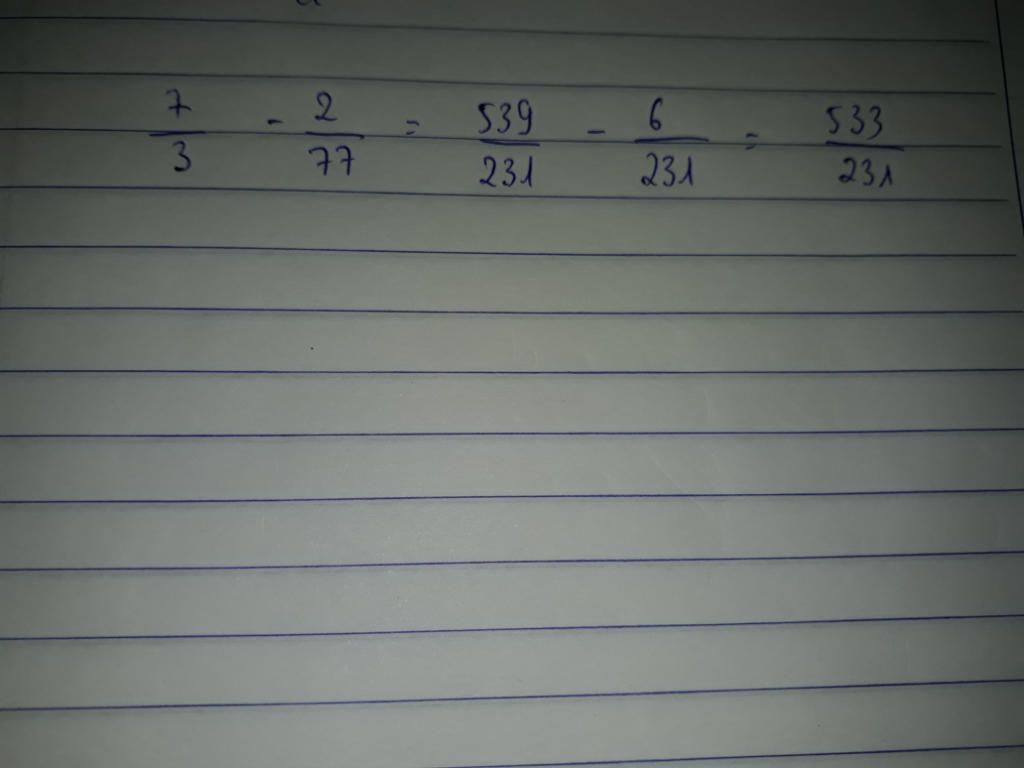 7/3 - 2/77 = 539/231 - 6/231 = 533/231